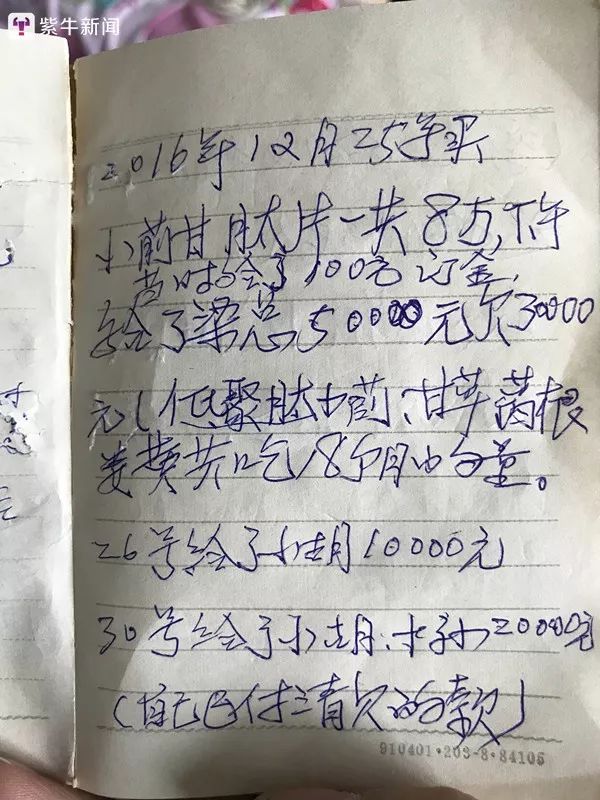 紫牛新闻
2016年12月25号买
小蓟甘肽片一共8万,下午
当时给了100元订金,
给了梁总50000元欠30000
元(低聚肽小蓟、甘草茵根
麦黄共吃18个月的量。
26号给了小胡10000元
30号给了小胡、小孙20000元
(自己已付清欠的款)
910401·203-8·84106